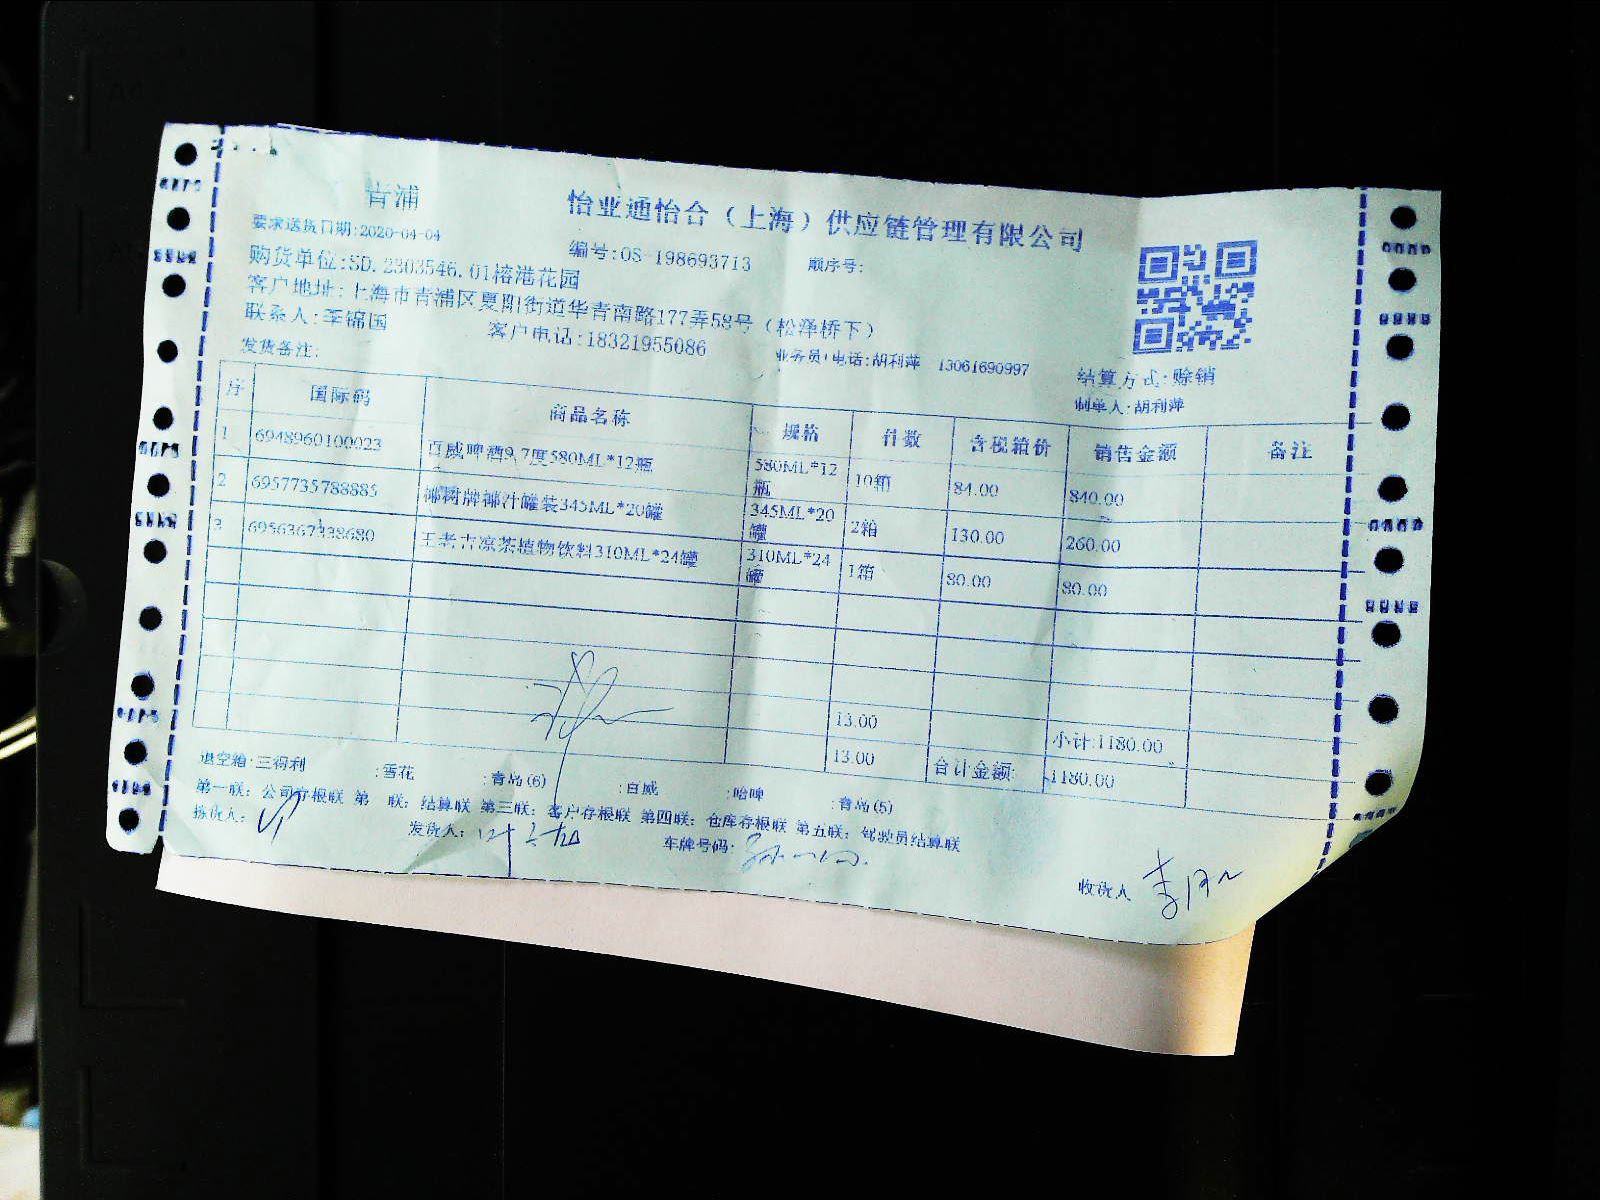 青浦
怡业通怡合（上海）供应链管理有限公司
要求送货日期:2020-04-04
编号:OS-198693713 顺序号:
购货单位:SD.2303546.01榕港花园
客户地址:上海市青浦区夏阳街道华青南路177弄58号（松泽桥下）
联系人:李锦国 客户电话:18321955086 业务员/电话:胡利萍 13061690997 结算方式:赊销
发货备注: 制单人:胡利萍
序 国际码 商品名称 规格 件数 含税箱价 销售金额 备注
1 6948960100023 百威啤酒9.7度580ML*12瓶 580ML*12瓶 10箱 84.00 840.00
2 6957735788885 椰树牌椰汁罐装345ML*20罐 345ML*20罐 2箱 130.00 260.00
3 6956367338680 王老吉凉茶植物饮料310ML*24罐 310ML*24罐 1箱 80.00 80.00
13.00 小计:1180.00
13.00 合计金额: 1180.00
退空箱:三得利 :雪花 :青岛(6) :百威 :哈啤 :青岛(5)
第一联：公司存根联 第 联：结算联 第三联：客户存根联 第四联：仓库存根联 第五联：驾驶员结算联
拣货人: 发货人: 车牌号码: 收货人